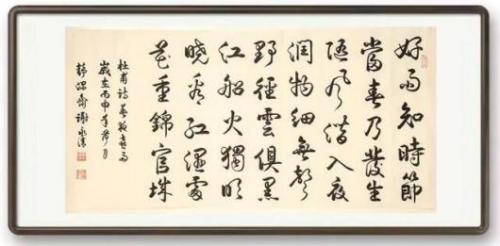 好雨知時節
當春乃發生
随風潜入夜
潤物細無聲
野徑雲俱黑
江船火獨明
曉看紅濕處
花重錦官城
杜甫詩春夜喜雨
歲在丙申年荷月